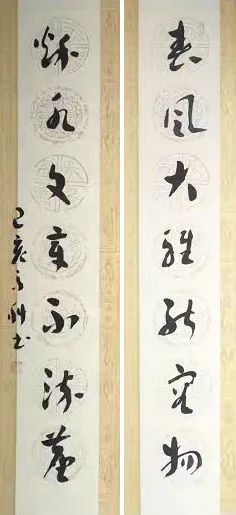 春风大雅能容物
秋水文章不染尘
己亥 书